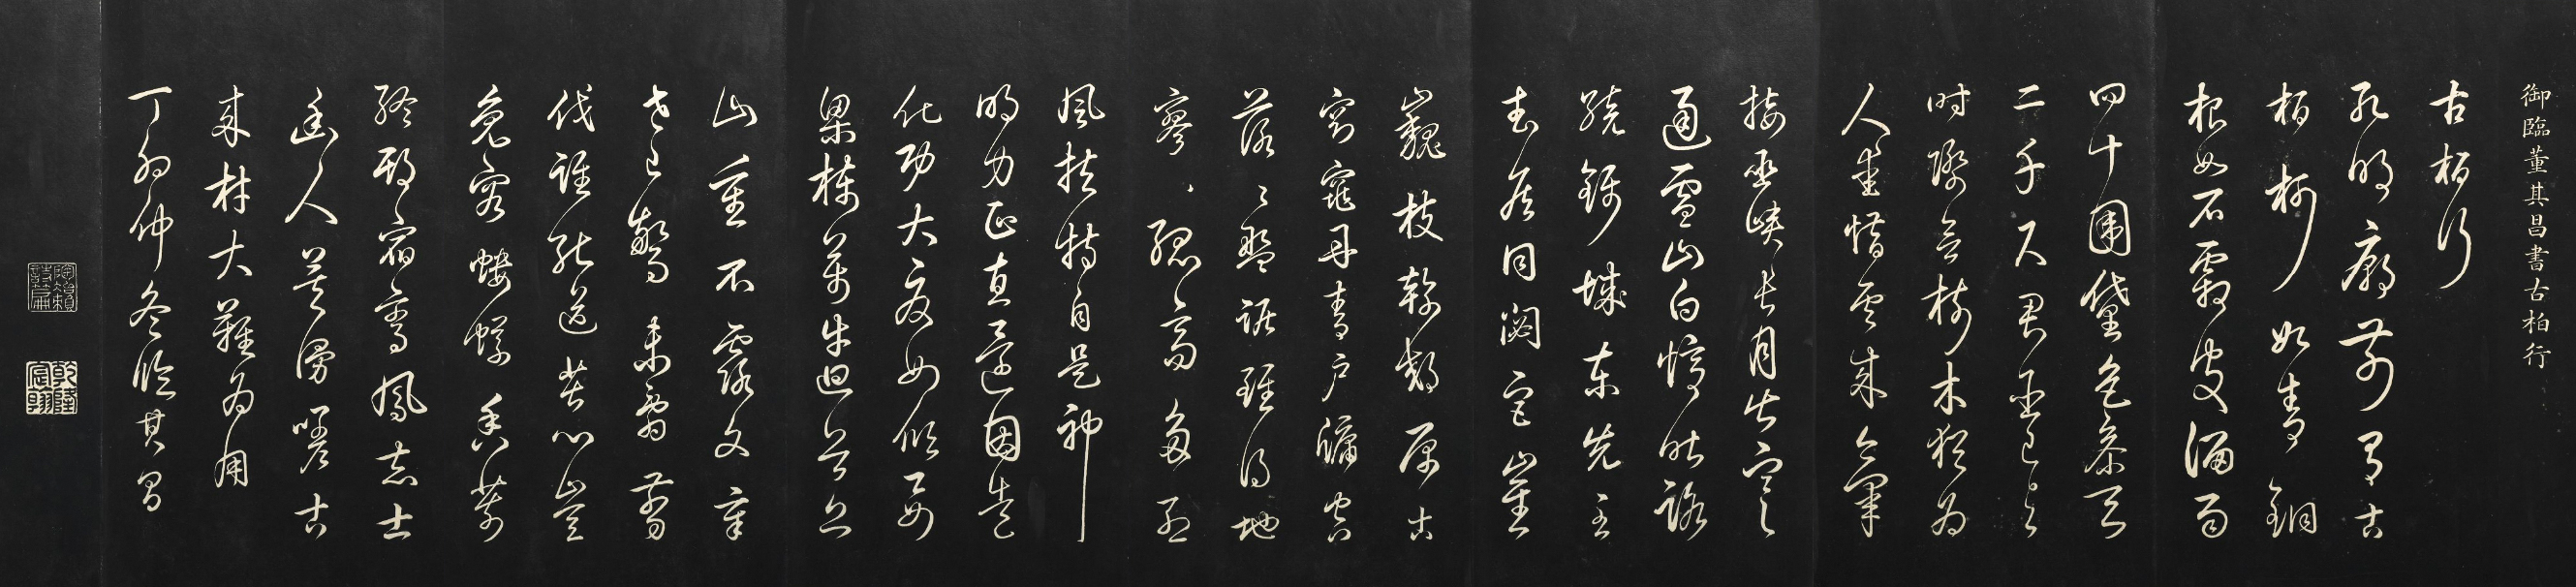 御臨董其昌書古柏行
古柏行
孔明廟前有古
柏柯如青銅
根如石霜皮溜雨
四十圍黛色參天
二千尺君臣已與
時際會樹木猶為
人愛惜雲來氣
接巫峽長月出寒
通雪山白憶昨路
繞錦城東先主
武侯同閟宮崔
嵬枝幹郊原古
窈窕丹青戶牖空
落落盤踞雖得地
冥冥孤高多烈
風扶持自是神
明力正直因造
化功大廈如傾要
梁棟萬牛回首丘
山重不露文章
世已驚未辭翦
伐誰能送苦心豈
免容螻蟻香葉
終經宿鸞鳳志士
幽人莫嗟古
來材大難為用
丁卯仲冬臨其昌
陶冶賴詩篇
乾隆宸翰